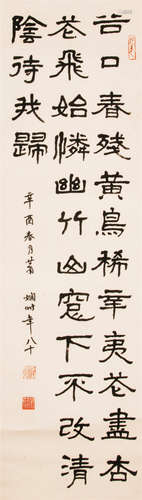 谷口春殘黃鳥稀辛夷花盡杏
花飛始憐幽竹山窗下不改清
陰待我歸
辛酉春月蕭
嫻時年八十